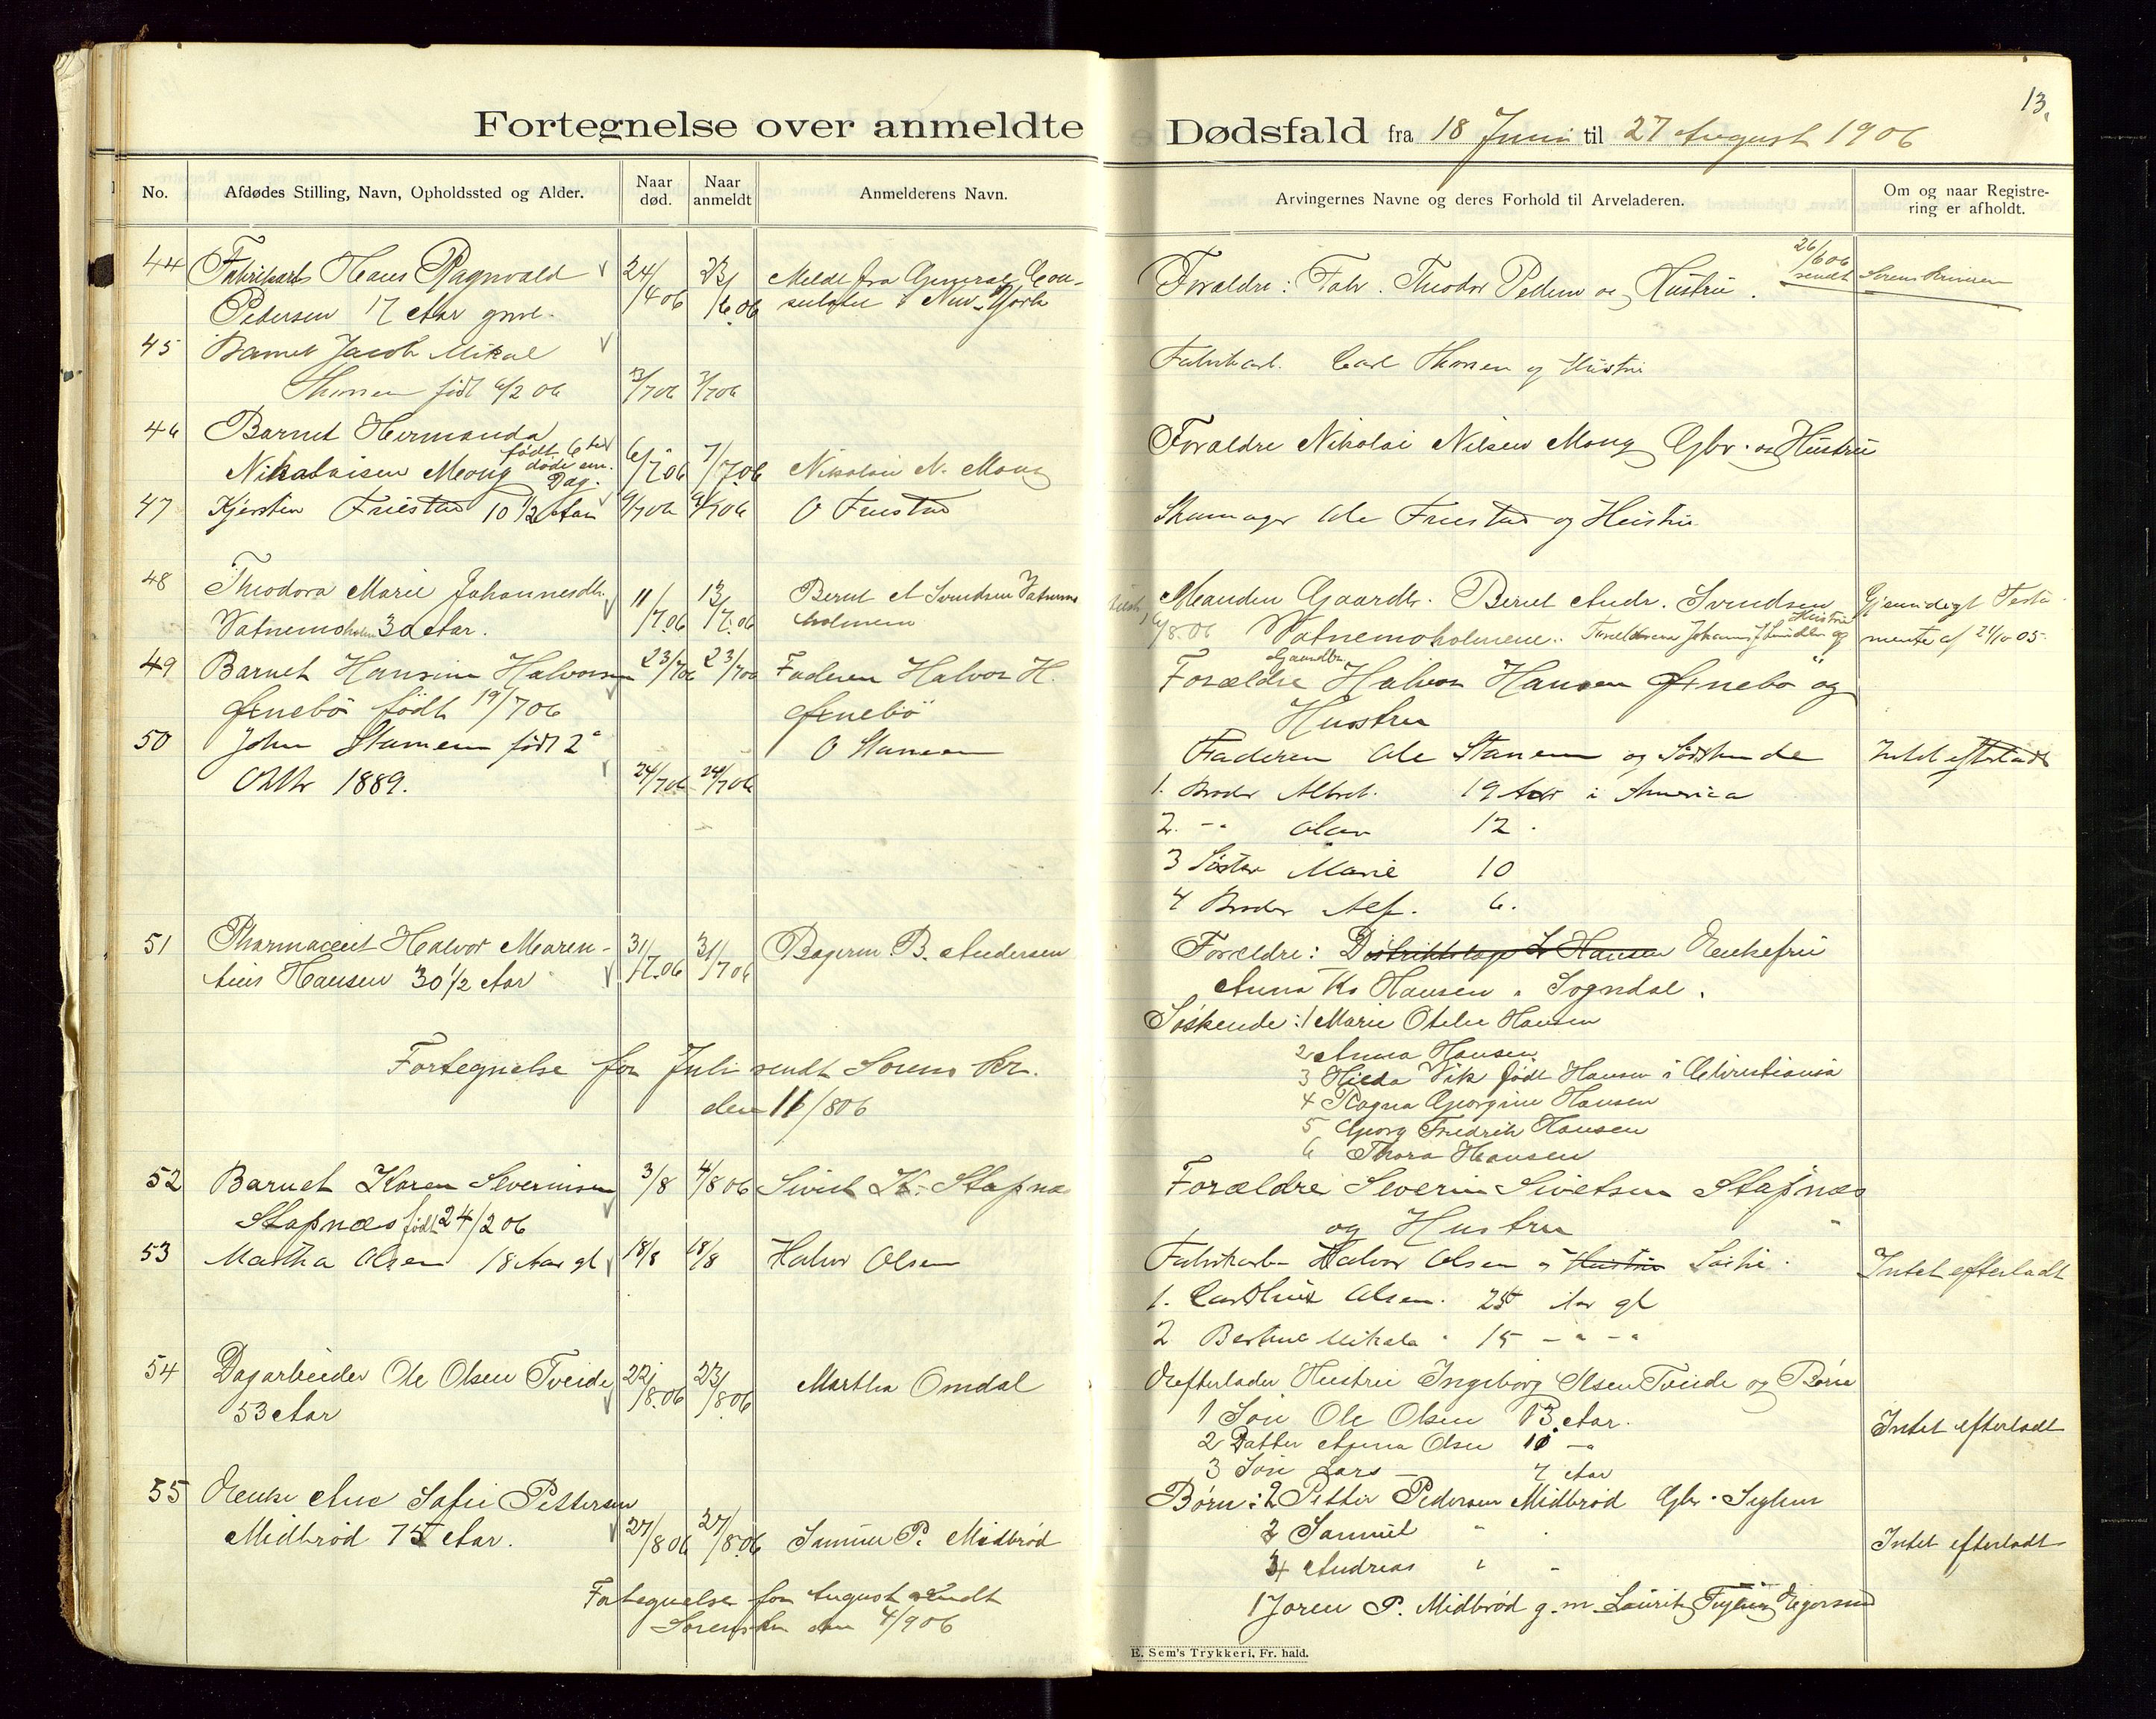 13.
Fortegnelse over anmeldte Dødsfald fra 18 Juni til 27 August 1906
No. Afdødes Stilling, Navn, Opholdssted og Alder. Naar død. Naar anmeldt Anmelderens Navn. Arvingernes Navne og deres Forhold til Arveladeren. Om og naar Registrering er afholdt.
44 Fabrikarb Hans Ragnvald 24/4 06 23/6 06 Meldt fra General Con- Forældre: Fabr. Theodor Pedersen og Hustru. 26/6 06 sendt
Pedersen 17 Aar gml. sulatet i New-York
45 Barnet Jacob Mikal
Thorsen født 6/2 06 3/7 06 3/7 06 Fabrikarb. Carl Thorsen og Hustru
46 Barnet Hermanda
Nikolaisen Mong født 6te døde sm. Dag. 6/7 06 7/7 06 Nikolai N. Mong Forældre Nikolai Nilsen Mong Gbr. og Hustru
47 Kjersten Friestad 10 1/2 Aar 9/7 06 9/7 06 O Friestad Skomager Ole Friestad og Hustru
48 Theodora Marie Johannesdtr. 11/7.06 13/7.06 Bernt A Svendsen Vatnemo Manden Gaardbr. Bernt Andr. Svendsen Gjensidigt Testa-
Vatnemoholm 30 Aar. holmen 6/8.06 Vatnemoholmene. og Hustru mente af 24/10 05
49 Barnet Hansine Halvorsen 23/7 06 23/7 06 Faderen Halvor H. Forældre Gaardbr. Halvor Hansen Øinebø og
Øinebö født 19/7 06 Øinebö Hustru
50 John Stamem født 2 O Stamem Faderen Ole Stamem og Södskende Intet efterladt
Oktbr 1889. 24/7 06 24/7 06
1. Broder Albert. 19 Aar i America
2. -" Olav 12.
3 Søster Marie 10
4 Broder Alf. 6.
51 Pharmaceut Halvor Maren- 31/7.06 31/7 06 Bagerm B. Andersen Forældre: Distriktslæge L Hansen Enkefru
tius Hansen 30 1/2 Aar Anna K. Hansen, Sogndal.
Søskende: 1 Marie Otelie Hansen
2 Anna Hansen
3 Hilda Vik født Hansen i Christiania
4 Ragna Georgine Hansen
5 Georg Fredrik Hansen
6 Thora Hansen
Fortegnelse for Juli sendt Sorens Kr.
den 11/8 06
52 Barnet Karen Severinsen 3/8 4/8 06 Sivert K. Stapnæs Forældre Severin Sivertsen Stapnæs
Stapnæs født 24/2 06 og Hustru
53 Martha Olsen 18 Aar gl 18/8 18/8 Halvor Olsen Fabrikarb Halvor Olsen og Hustru Intet efterladt
1. Olsen. 25 Aar gl
2 Bertine Mikala " 15 - " - "
54 Dagarbeider Ole Olsen Tveide 22/8.06 23/8 06 Martha Omdal Efterlader Hustru Ingeborg Olsen Tveide og Børn
53 Aar 1 Søn Ole Olsen 13 Aar. Intet efterladt
2 Datter Anna Olsen 10 -"
3 Søn Lars - 7 Aar
55 Enke Ane Sofie Pettersen Børn: 2 Petter Pedersen Midbrød Gbr. Seglem
Midbrød 75 Aar. 27/8 06 27/8.06 Samuel P. Midbrød 3 Samuel " Intet efterladt
4 Andreas "
1 Joren P. Midbrød g. m Laurits Egersund
Fortegnelse for August sendt
Sorenskr den 4/9 06
E. Sem's Trykkeri, Fr. hald.